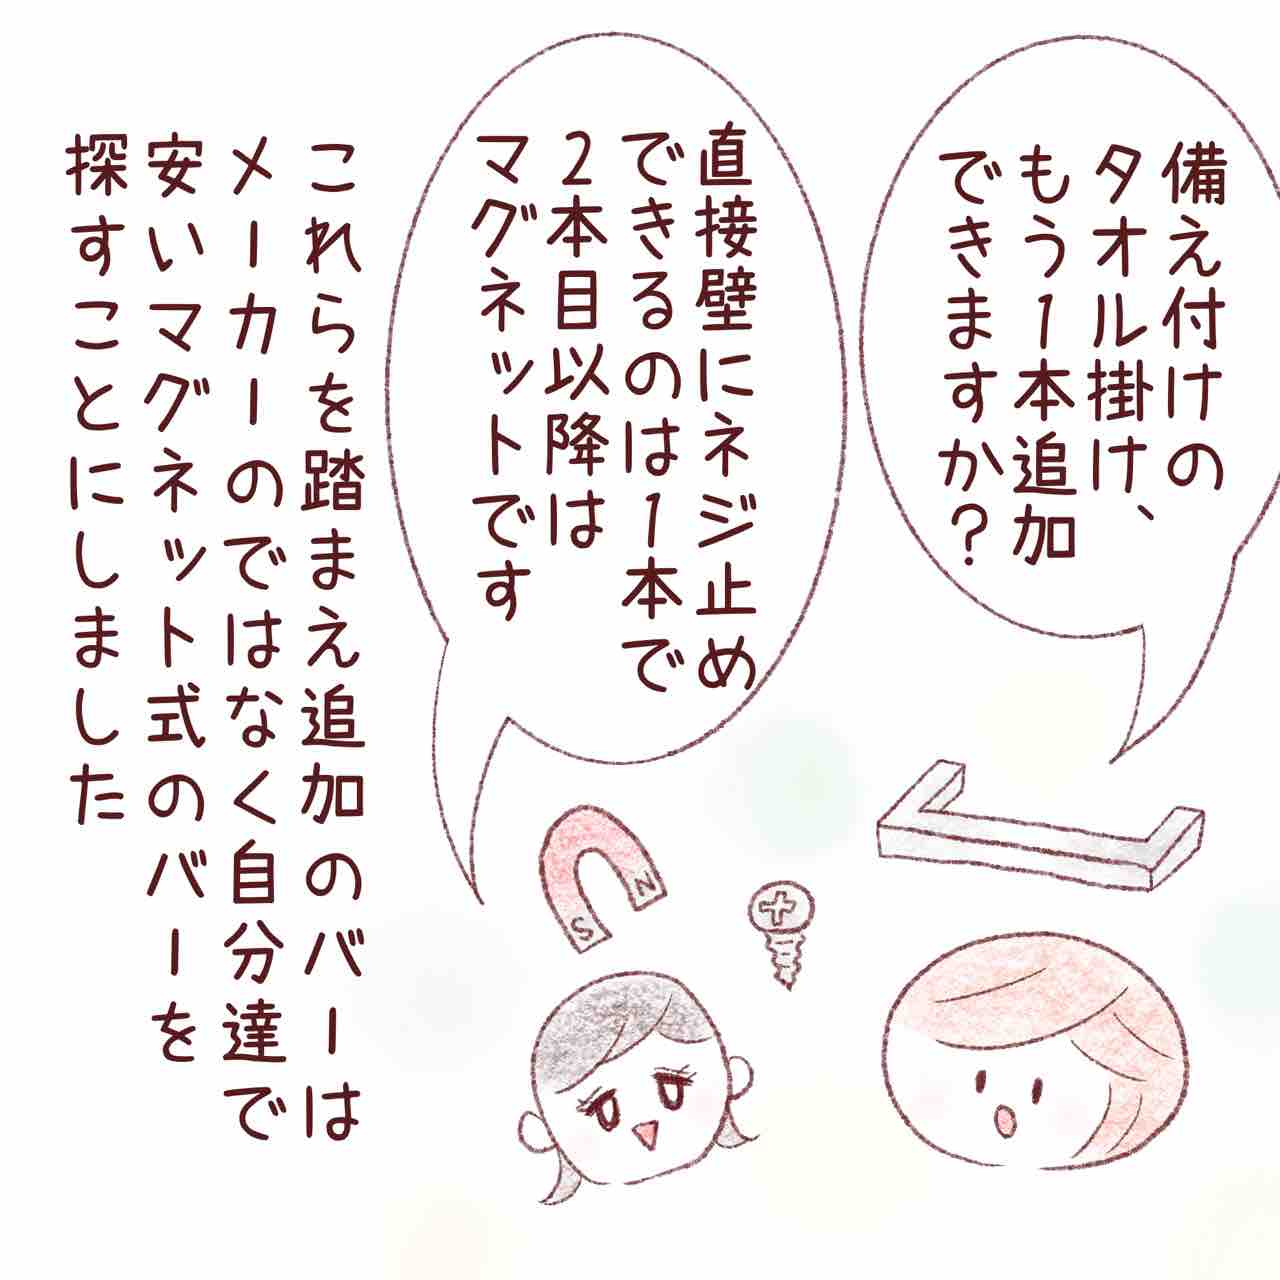 備え付けの
タオル掛け、
もう1本追加
できますか?
直接壁にネジ止め
できるのは1本で
2本目以降は
マグネットです
N
S
これらを踏まえ追加のバーは
メーカーのではなく自分達で
安いマグネット式のバーを
探すことにしました